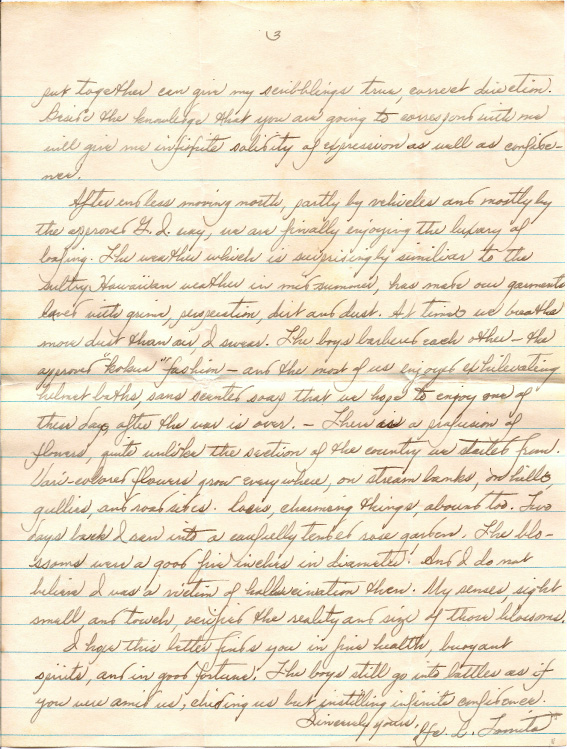 3
put together can give my scribblings true, correct direction.
Beside the knowledge that you are going to correspond with me
will give me infinite solidity of expression as well as confide-
nce.
After endless moving north, partly by vehicles and mostly by
the approved G.I. way, we are finally enjoying the luxury of
loafing. The weather which is surprisingly similiar to the
sultry Hawaiian weather in mid summer, has made our garments
laved with grime, perspiration, dirt and dust. At times we breathe
more dust than air, I swear. The boys barbered each other – the
approved "kokua" fashion – and the most of us enjoyed exhilerating
helmet baths sans scented soaps that we hope to enjoy one of
these days after the war is over. – There is a profusion of
flowers, quite unlike the section of the country we started from.
Vari-colored flowers grow everywhere, on stream banks, on hills,
gullies, and roadsides. Roses, charming things, abound too. Two
days back I ran into a carefully tended rose garden. The blo-
ssoms were a good five inches in diameter! And I do not
believe I was a victim of hallucination then. My senses, sight
smell and touch, verified the reality and size of those blossoms.
I hope this letter finds you in fine health, buoyant
spirits, and in good fortune. The boys still go into battles as if
you were amid us, chiding us but instilling infinite confidence.
Sincerely yours,
Pfc. L.